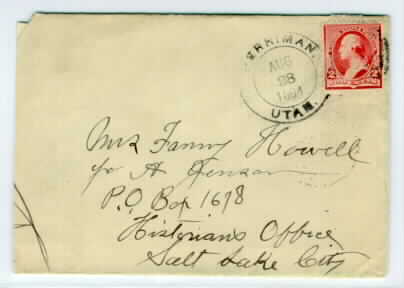 ERRIMAN.
AUG
28
UTAH.
2 2
Mrs Fanny Howell
c/o A Jenson
P.O. Box 1678
Historians Office
Salt Lake City